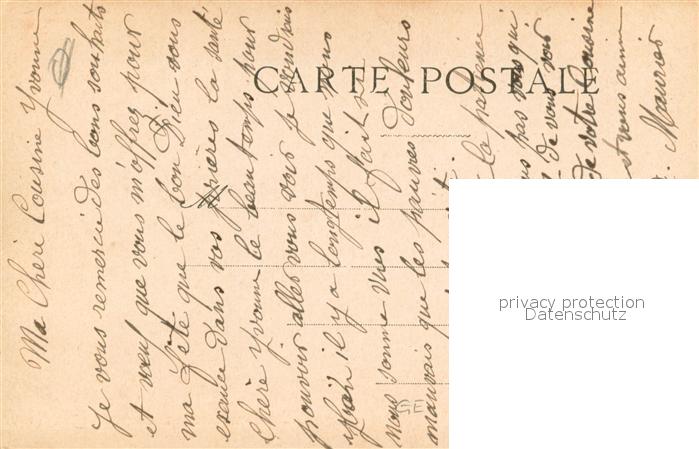 CARTE POSTALE
Ma Cheri Cousine Yvonne
Je vous remerci des bons souhaits
et vœuf que vous m'offrez pour
ma fête que le bon Dieu vous
exauce dans vos prières la santé
Chère Yvonne le beau temps pour
pouvoir alles vous voir je voudrais
il y a longtemps que nous
nous somme vus il fait
mauvais que les pauvres douleurs
la patience
pas vous qui
de vous voir
de votre cousine
et vous aim
Maurier
GE
privacy protection
Datenschutz